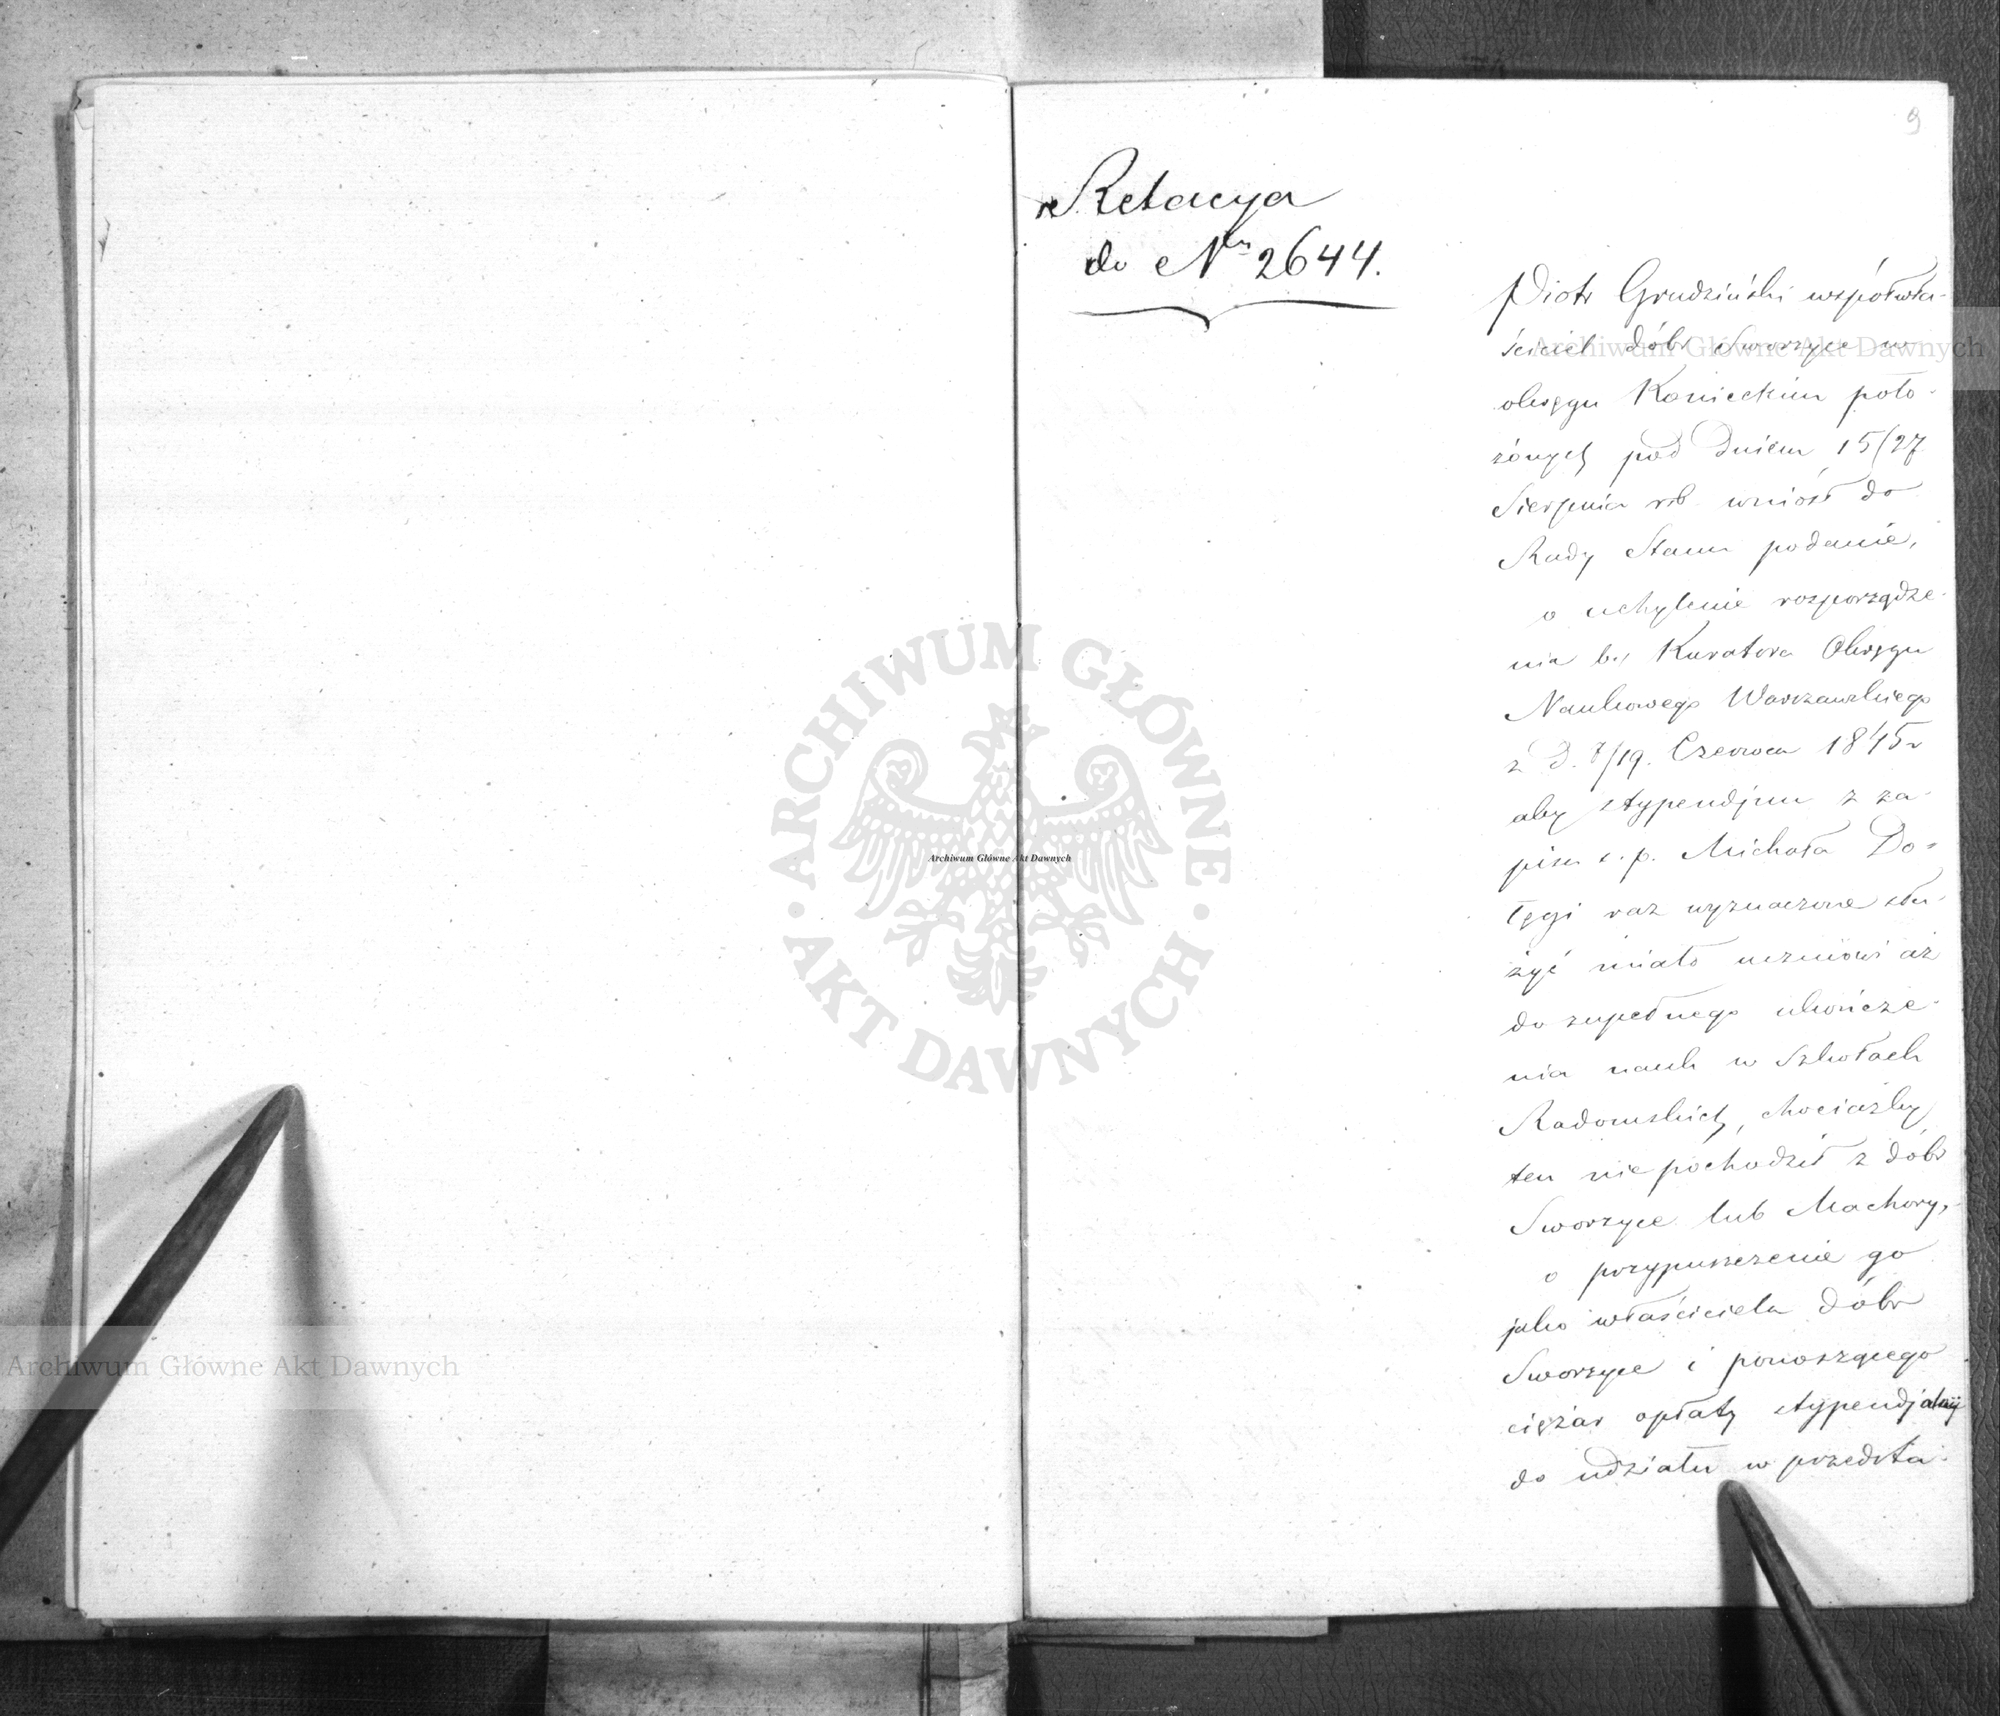 9
Relacya
do Nru 2644.
Piotr Grudziński współwła-
ściciel dóbr Sworzyce w
okręgu Konieckim poło-
żonych pod Dniem 15/27
Sierpnia rb. wniósł do
Rady Stanu podanie,
o uchylenie rozporządze-
nia b. Kuratora Okręgu
Naukowego Warszawskiego
z D. 7/19. Czerwca 1845 r
aby stypendjum z za-
pisu ś. p. Michała Do-
łęgi raz wyznaczone słu-
żyć miało uczniowi aż
do zupełnego ukończe-
nia nauk w Szkołach
Radomskich, chociażby
ten nie pochodził z dóbr
Sworzyce lub Machory,
o przypuszczenie go
jako właściciela dóbr
Sworzyce i ponoszącego
ciężar opłaty stypendjalnéj
do udziału w przedsta-
Archiwum Główne Akt Dawnych
Archiwum Główne Akt Dawnych
Archiwum Główne Akt Dawnych
ARCHIWUM GŁÓWNE AKT DAWNYCH